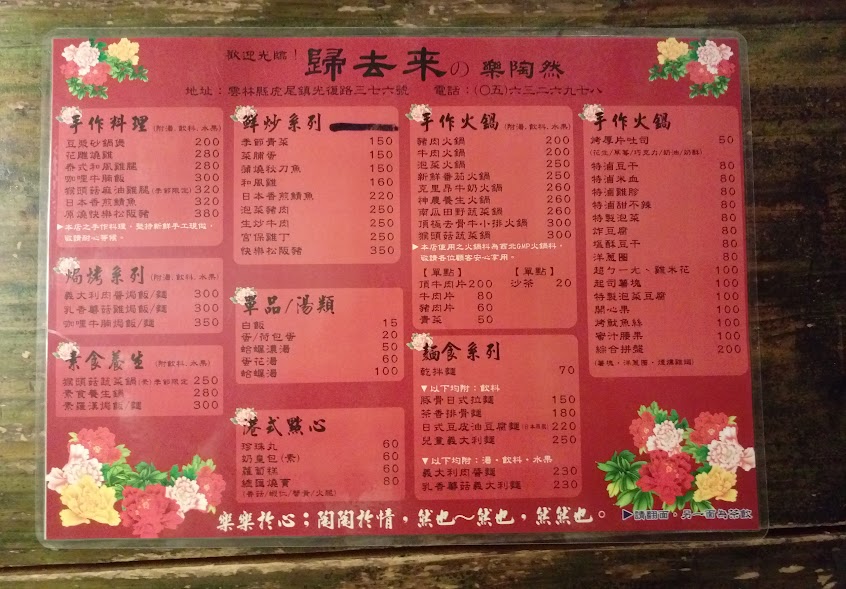 歡迎光臨！歸去來の 樂陶然
地址：雲林縣虎尾鎮光復路三七六號 電話：(〇五)六三二六九七八
手作料理(附湯、飲料、水果)
豆漿砂鍋煲 200
花雕燒雞 280
泰式和風雞腿 280
咖哩牛腩飯 300
猴頭菇麻油雞腿(季節限定) 320
日本香煎鯖魚 320
原燒快樂松阪豬 380
▶本店之手作料理，堅持新鮮手工現做，
敬請耐心等候。
焗烤系列(附湯、飲料、水果)
義大利肉醬焗飯/麵 300
乳香蘑菇雞焗飯/麵 300
咖哩牛腩焗飯/麵 350
素食養生 (附飲料、水果)
猴頭菇蔬菜鍋(素)季節限定 250
素食養生鍋 280
素羅漢焗飯/麵 300
鮮炒系列
季節青菜 150
菜脯蛋 150
蒲燒秋刀魚 150
和風雞 160
日本香煎鯖魚 250
泡菜豬肉 250
生炒牛肉 250
宮保雞丁 250
快樂松阪豬 350
單品/湯類
白飯 15
蛋/荷包蛋 20
蛤蠣濃湯 50
蛋花湯 60
蛤蠣湯 100
港式點心
珍珠丸 60
奶皇包(素) 60
蘿蔔糕 60
綜匯燒賣 80
(香菇/蝦仁/蟹黃/火腿)
手作火鍋(附湯、飲料、水果)
豬肉火鍋 200
牛肉火鍋 200
泡菜火鍋 250
新鮮番茄火鍋 250
克里昂牛奶火鍋 260
神農養生火鍋 260
南瓜田野蔬菜鍋 260
頂極去骨牛小排火鍋 300
猴頭菇蔬菜鍋 300
▶本店使用之火鍋料為西北GMP火鍋料，
敬請各位顧客安心享用。
【單點】 【單點】
頂牛肉片 200 沙茶 20
牛肉片 80
豬肉片 60
青菜 50
麵食系列
乾拌麵 70
▼以下均附：飲料
豚骨日式拉麵 150
茶香排骨麵 180
日式豆皮油豆腐麵 220
兒童義大利麵 250
▼以下均附：湯、飲料、水果
義大利肉醬麵 230
乳香蘑菇義大利麵 230
手作火鍋
烤厚片吐司 50
(花生/草莓/巧克力/奶油/奶酥)
特滷豆干 80
特滷米血 80
特滷雞胗 80
特滷甜不辣 80
特製泡菜 80
炸豆腐 80
塩酥豆干 80
洋蔥圈 80
超ㄅㄧㄤˋ雞米花 100
起司薯塊 100
特製泡菜豆腐 100
開心果 100
烤魷魚絲 100
蜜汁腰果 100
綜合拼盤 200
樂樂於心；陶陶於情，然也～然也，然然也。
▶請翻面，另一面為茶飲